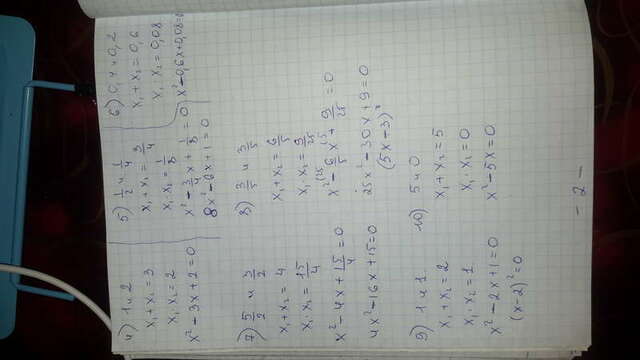 4) 1 и 2
x₁ + x₂ = 3
x₁ · x₂ = 2
x² - 3x + 2 = 0
5) 1/2 и 1/4
x₁ + x₂ = 3/4
x₁ · x₂ = 1/8
x² - 3/4 x + 1/8 = 0
8x² - 6x + 1 = 0
6) 0,4 и 0,2
x₁ + x₂ = 0,6
x₁ · x₂ = 0,08
x² - 0,6x + 0,08 = 0
7) 5/2 и 3/2
x₁ + x₂ = 4
x₁ · x₂ = 15/4
x² - 4x + 15/4 = 0
4x² - 16x + 15 = 0
8) 3/5 и 3/5
x₁ + x₂ = 6/5
x₁ · x₂ = 9/25
x² - 6/5 x + 9/25 = 0
25x² - 30x + 9 = 0
(5x - 3)²
9) 1 и 1
x₁ + x₂ = 2
x₁ · x₂ = 1
x² - 2x + 1 = 0
(x - 2)² = 0
10) 5 и 0
x₁ + x₂ = 5
x₁ · x₂ = 0
x² - 5x = 0
- 2 -